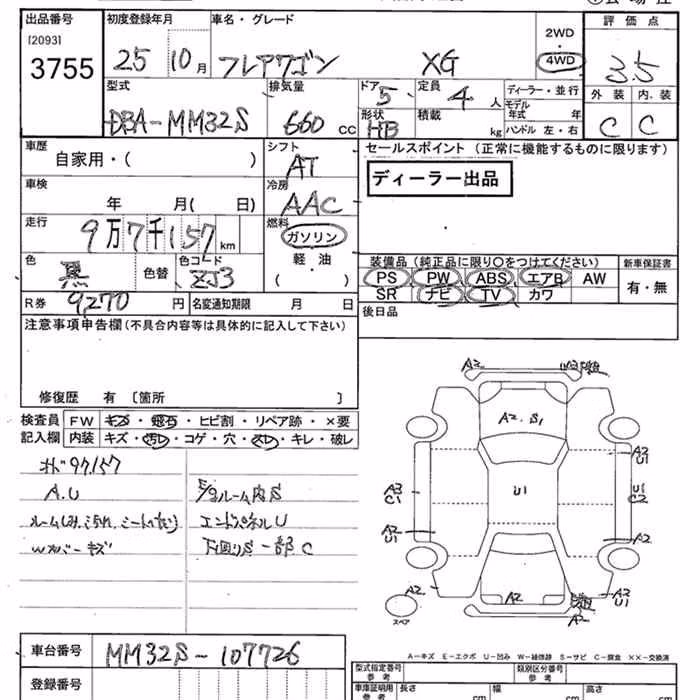 出品番号 初度登録年月 車名・グレード 2WD ・ 4WD 評価点
[2093]
3755 25 10月 フレアワゴン XG 3.5
型式 排気量 ドア 5 定員 4人 ディーラー・並行 外装 内装
DBA-MM32S 660 cc 形状 HB 積載 kg モデル年式 年 ハンドル 左・右 C C
車歴 シフト セールスポイント (正常に機能するものに限ります)
自家用・( ) AT
ディーラー出品
車検 冷房
年 月( 日) AAC
走行 燃料
9万7千157km ガソリン
色 色コード 軽・油
黒 色替 ZJ3 ( )
装備品 (純正品に限り○をつけてください) 新車保証書
PS PW ABS エアB AW 有・無
SR ナビ TV カワ
R券 9270 円 名変通知期限 月 日
後日品
注意事項申告欄 (不具合内容等は具体的に記入して下さい)
修復歴 有 〔箇所 〕
検査員 FW キズ・飛石・ヒビ割・リペア跡・×要
記入欄 内装 キズ・汚レ・コゲ・穴・スレ・キレ・破レ
97,157
A.U E/gルーム内S
エンドパネルU
Wカバーキズ 下回りS一部C
A2
A2.S1
U1
A3
C1
A2
U1
A2
A2
A2
U1
U1
C2
A2
A2
U1
スペア
車台番号 MM32S-107726
登録番号
A-キズ E-エクボ U-凹み W-補修跡 S-サビ C-腐食 ××-交換済
型式指定番号 参考 類別区分番号 参考
車庫証明用 参考 長さ cm 幅 cm 高さ cm